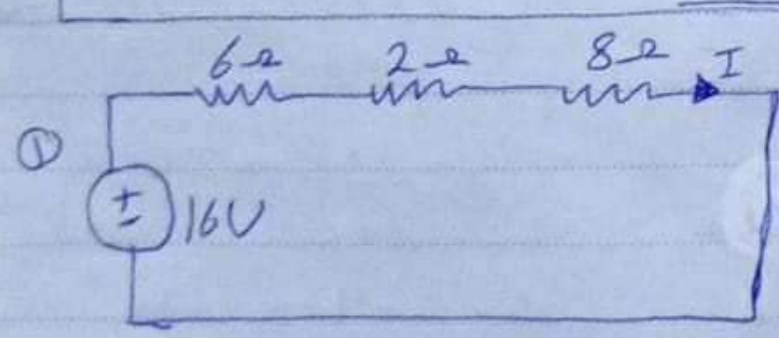 6Ω 2Ω 8Ω I
①
+
-
16V